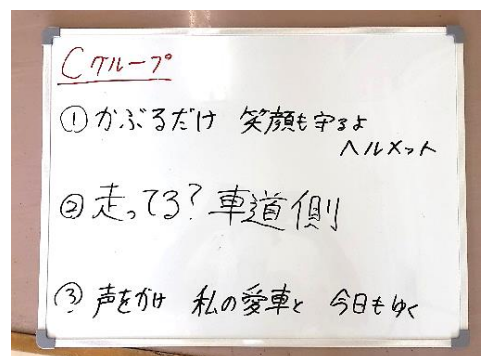 Cグループ
①かぶるだけ 笑顔も守るよ
ヘルメット
②走ってる?車道側
③声をかけ 私の愛車と 今日もゆく